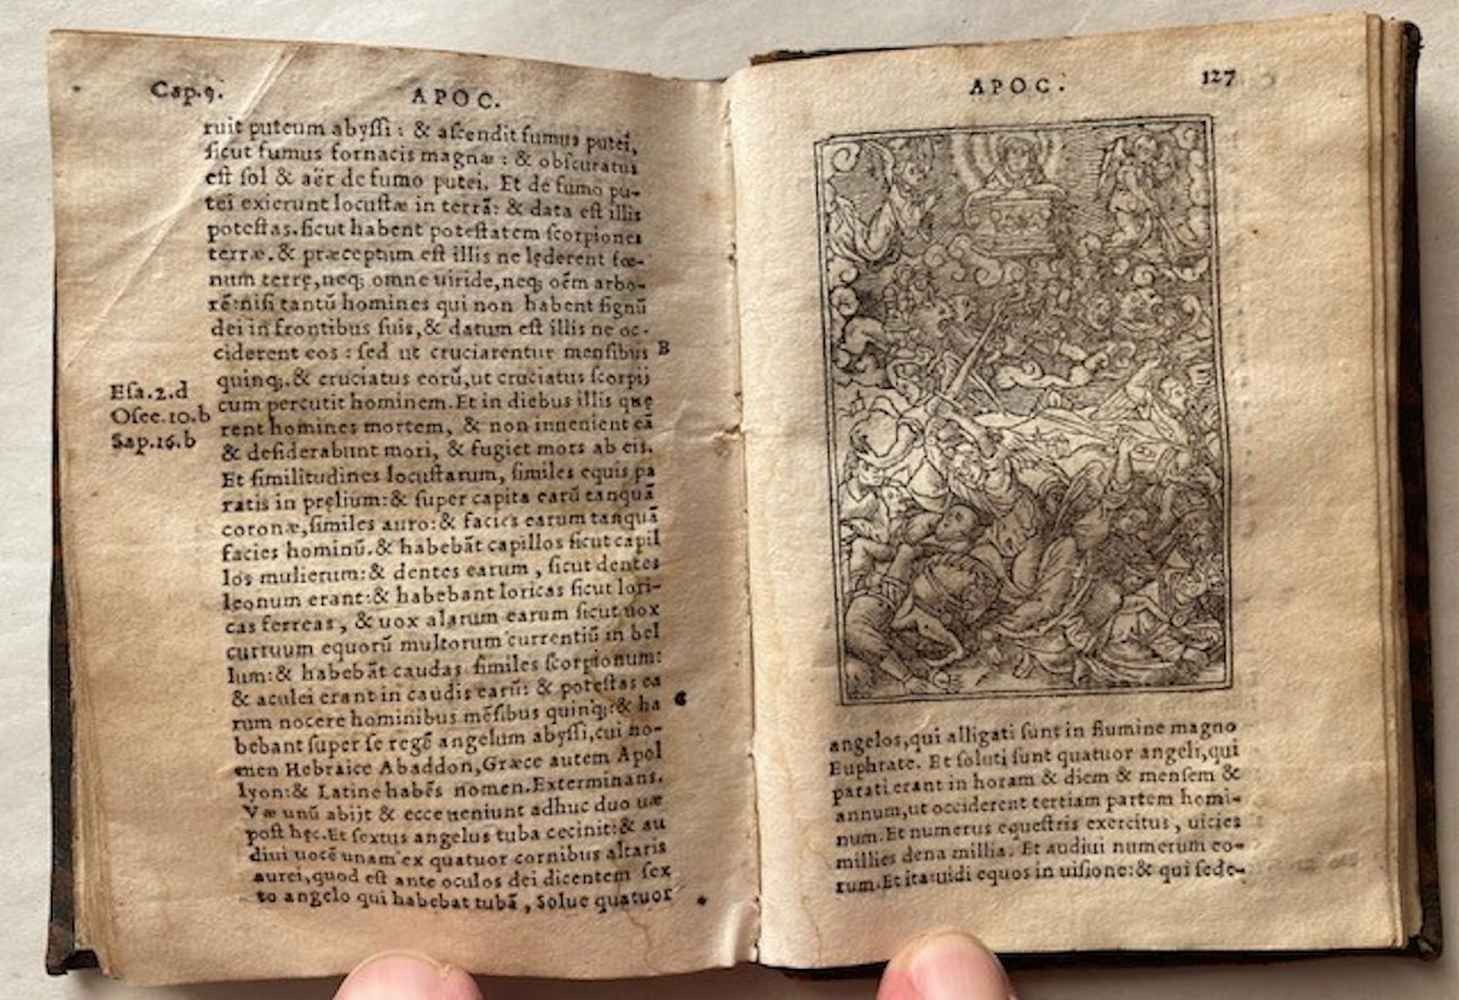 Cap.9. APOC.
ruit puteum abyſſi : & aſcendit fumus putei,
ſicut fumus fornacis magnæ : & obſcuratus
eſt ſol & aër de fumo putei. Et de fumo pu-
tei exierunt locuſtæ in terrā: & data eſt illis
poteſtas.ſicut habent poteſtatem ſcorpiones
terræ.& præceptum eſt illis ne lęderent fœ-
num terrę,neq; omne uiride,neq; oēm arbo-
rē:niſi tantū homines qui non habent ſignū
dei in frontibus ſuis,& datum eſt illis ne oc-
ciderent eos : ſed ut cruciarentur menſibus B
quinq;.& cruciatus eorū,ut cruciatus ſcorpij
Eſa.2.d
Oſee.10.b
Sap.16.b
cum percutit hominem.Et in diebus illis quę
rent homines mortem, & non inuenient eā
& deſiderabunt mori, & fugiet mors ab eis.
Et ſimilitudines locuſtarum, ſimiles equis pa
ratis in pręlium:& ſuper capita earū tanquā
coronæ,ſimiles auro:& facies earum tanquā
facies hominū.& habebāt capillos ſicut capil
los mulierum:& dentes earum , ſicut dentes
leonum erant:& habebant loricas ſicut lori-
cas ferreas, & uox alarum earum ſicut uox
curruum equorū multorum currentiū in bel
lum:& habebāt caudas ſimiles ſcorpionum:
& aculei erant in caudis earū: & poteſtas ea
rum nocere hominibus mēſibus quinq;:& ha C
bebant ſuper ſe regē angelum abyſſi,cui no-
men Hebraice Abaddon,Græce autem Apol
lyon:& Latine habēs nomen.Exterminans.
Væ unū abijt & ecce ueniunt adhuc duo uæ
poſt hęc.Et ſextus angelus tuba cecinit:& au
diui uocē unam ex quatuor cornibus altaris
aurei,quod eſt ante oculos dei dicentem ſex
to angelo qui habebat tubā , Solue quatuor
APOC. 127
angelos,qui alligati ſunt in flumine magno
Euphrate. Et ſoluti ſunt quatuor angeli,qui
parati erant in horam & diem & menſem &
annum,ut occiderent tertiam partem homi-
num.Et numerus equeſtris exercitus , uicies
millies dena millia. Et audiui numerum eo-
rum.Et ita uidi equos in uiſione:& qui ſede-